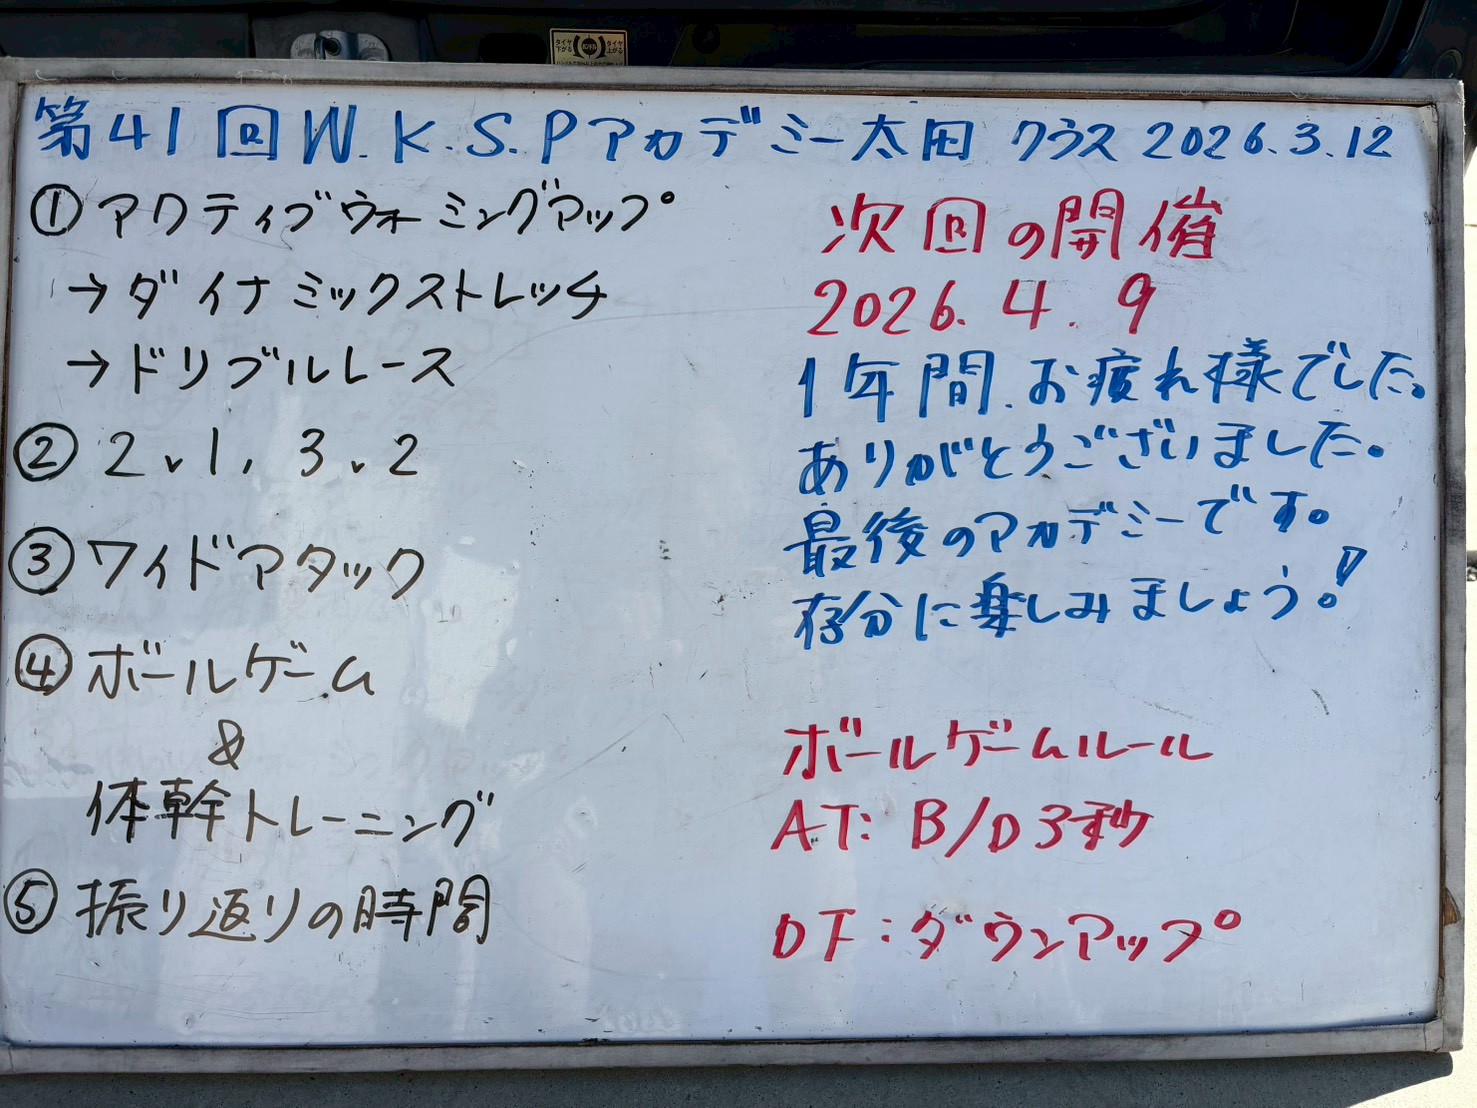 第41回W.K.S.Pアカデミー太田 クラス 2026.3.12
①アクティブウォーミングアップ
→ダイナミックストレッチ
→ドリブルレース
② 2v1, 3v2
③ワイドアタック
④ボールゲーム
&
体幹トレーニング
⑤振り返りの時間
次回の開催
2026.4.9
1年間.お疲れ様でした。
ありがとうございました。
最後のアカデミーです。
存分に楽しみましょう!
ボールゲームルール
AT: B/D3秒
DF:ダウンアップ